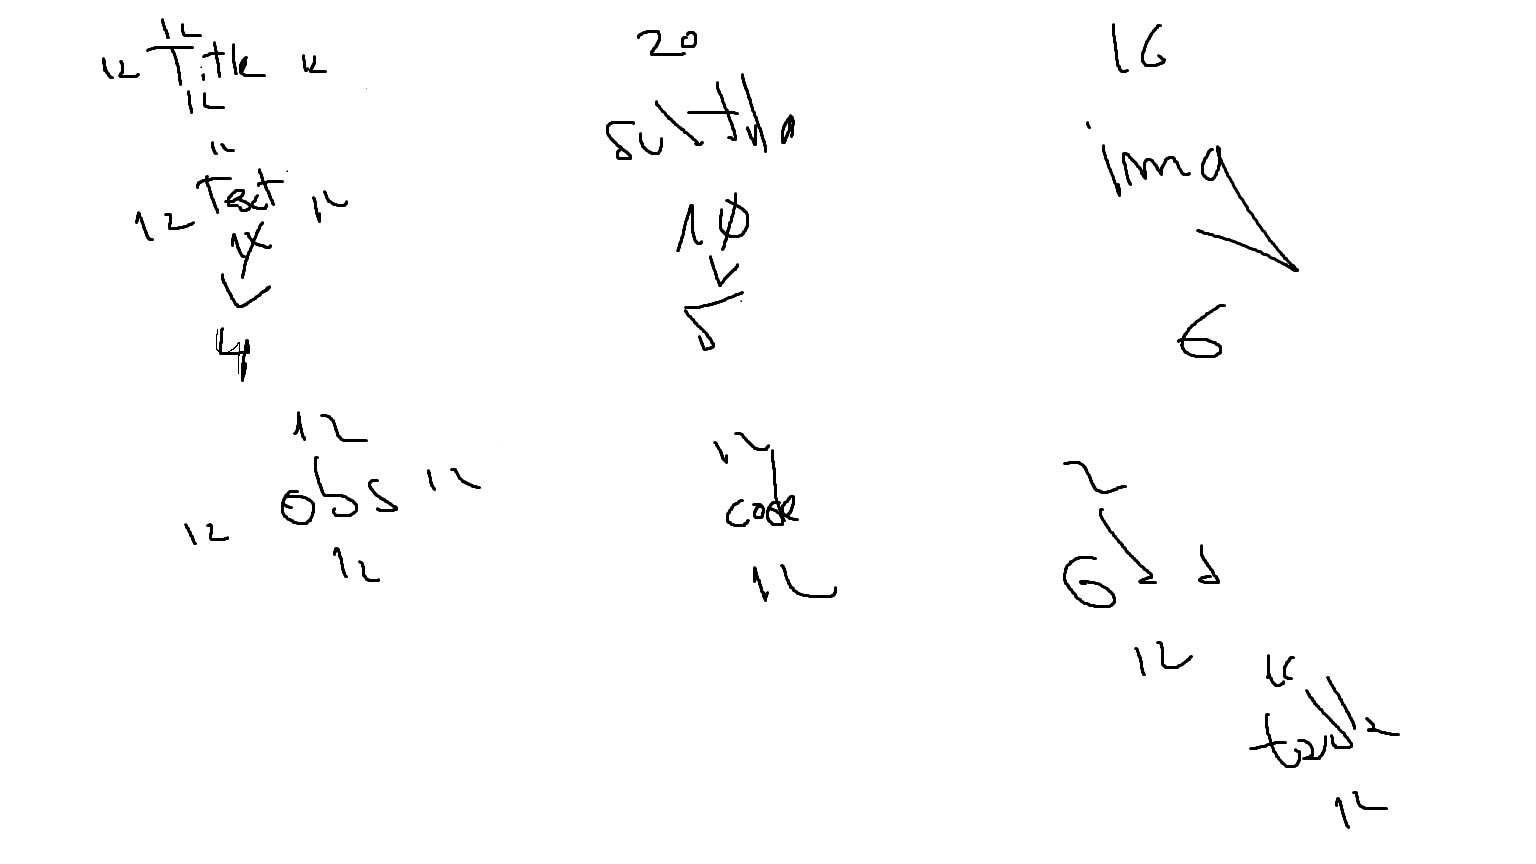 12
12 Title 12
12
12
12 Text 12
12
4
20
subtitle
10
5
16
img
6
12
obs 12
12
12
12
code
12
2
12
16
table
12